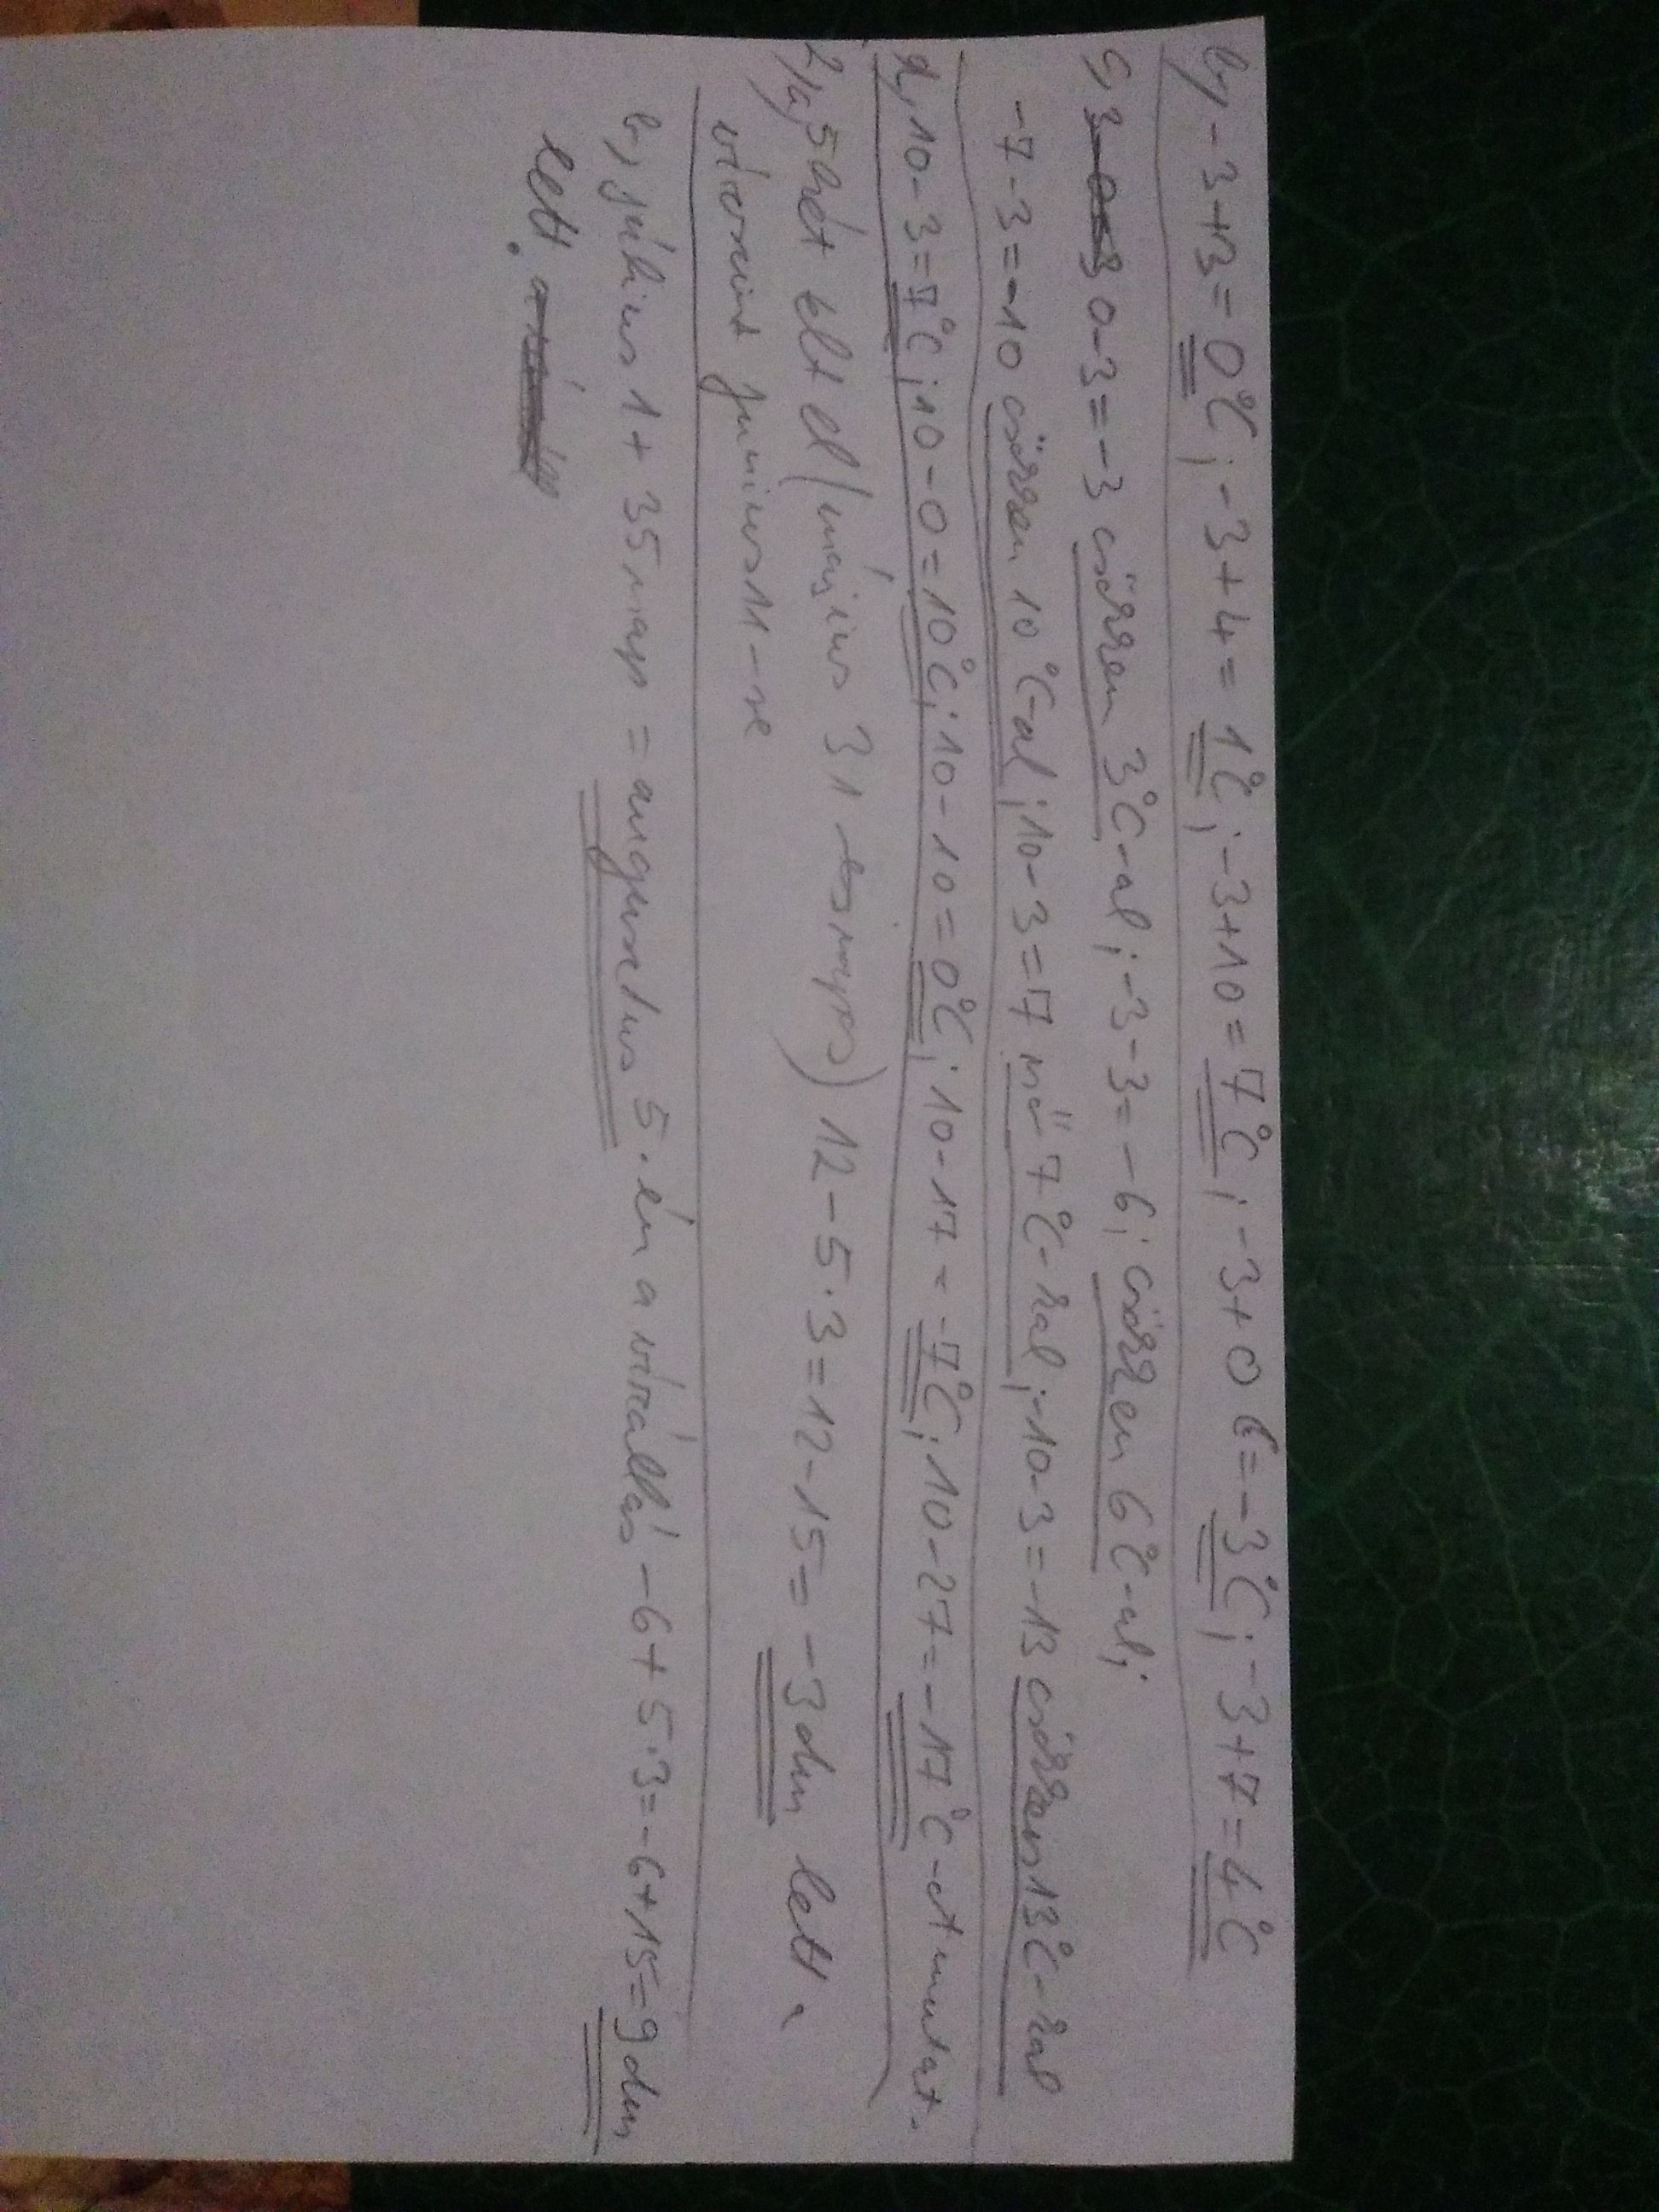 b, -3+3=0°C; -3+4=1°C; -3+10=7°C; -3+0=-3°C; -3+7=4°C
c, 0-3=-3 csökken 3°C-al; -3-3=-6; csökken 6°C-al;
-7-3=-10 csökken 10°C-al; 10-3=7 nő 7°C-kal; -10-3=-13 csökken 13°C-kal
d, 10-3=7°C; 10-0=10°C; 10-10=0°C; 10-17=-7°C; 10-27=-17°C-ot mutat.
2, a, 5 hét telt el (május 31 napos) 12-5·3=12-15=-3dm lett a
vízszint június 11-re
b, július 1+35 nap = augusztus 5.-én a vízállás -6+5·3=-6+15=9dm
lett.